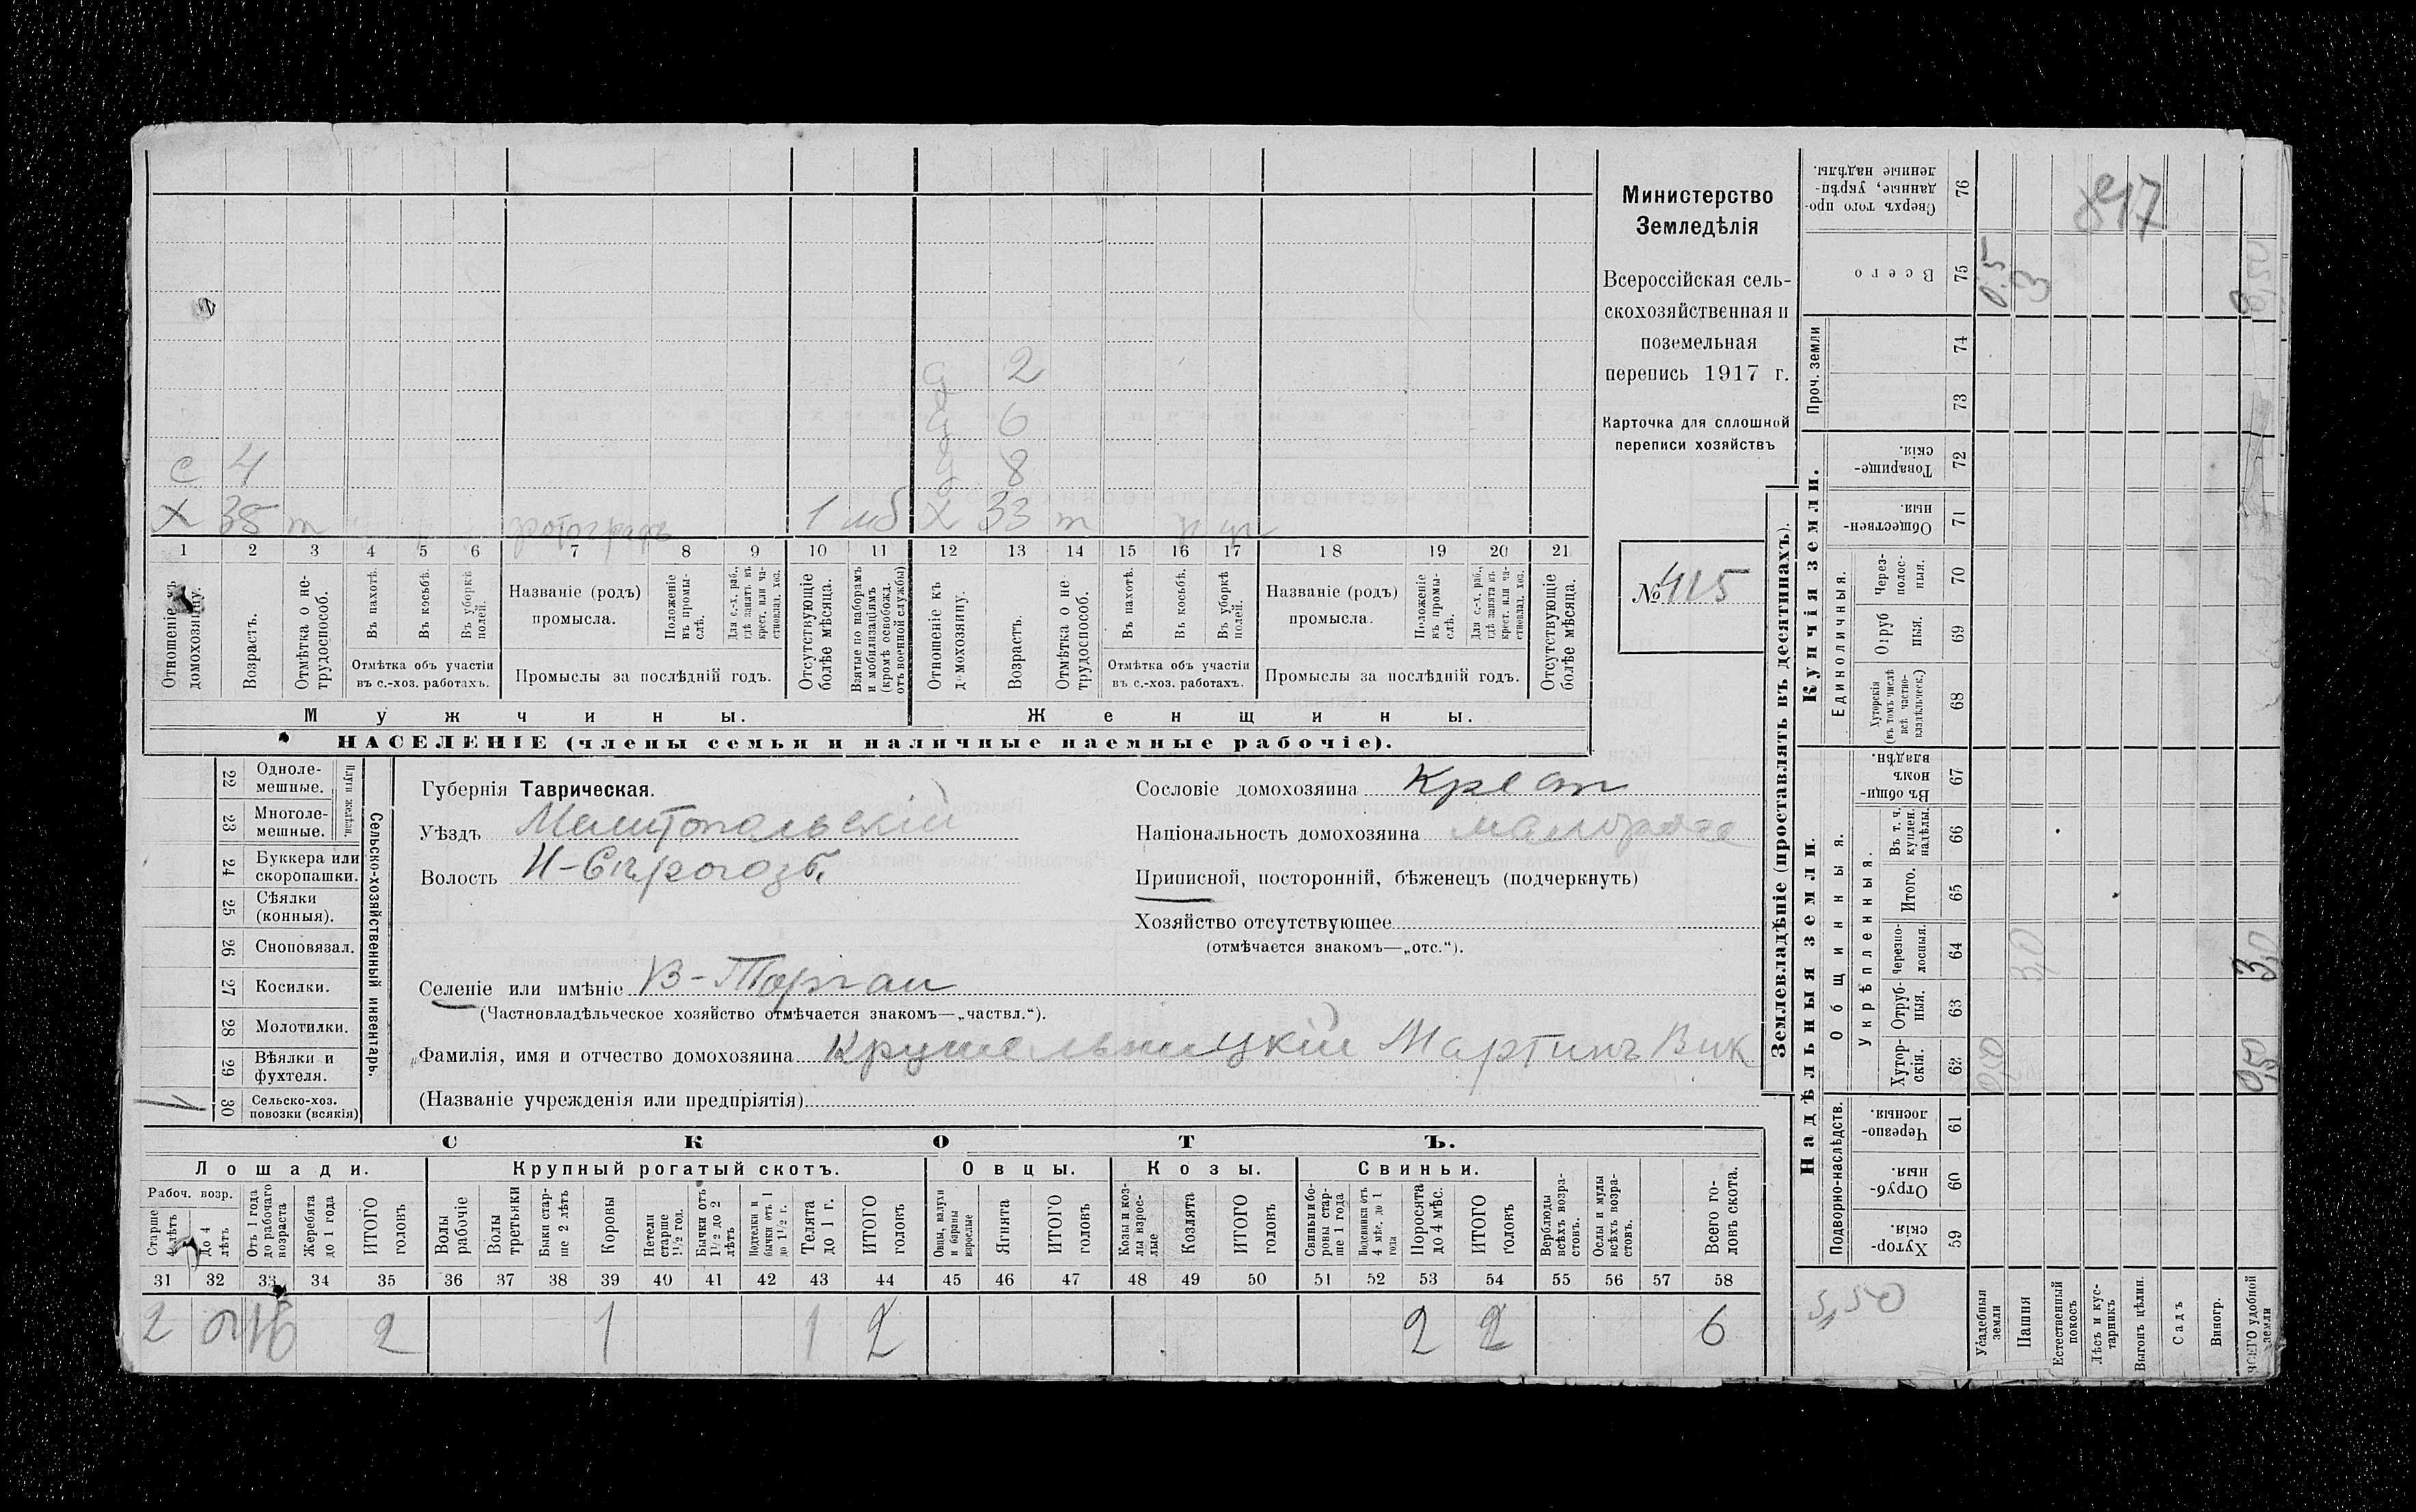 с 4
х 35 т фотографъ 1 моб х 33 т
д 2
д 6
д 8
1 2 3 4 5 6 7 8 9 10 11 12 13 14 15 16 17 18 19 20 21
Отношеніе къ домохозяину.
Возрастъ.
Отмѣтка о нетрудоспособ.
Въ пахотѣ.
Въ косьбѣ.
Въ уборкѣ полей.
Отмѣтка объ участіи
въ с.-хоз. работахъ.
Названіе (родъ)
промысла.
Положеніе въ промыслѣ.
Для с.-х. раб., гдѣ занятъ въ крест. или частновлад. хоз.
Промыслы за послѣдній годъ.
Отсутствующіе болѣе мѣсяца.
Взятые по наборамъ и мобилизаціямъ (кромѣ освобожд. отъ военной службы)
Отношеніе къ домохозяину.
Возрастъ.
Отмѣтка о нетрудоспособ.
Въ пахотѣ.
Въ косьбѣ.
Въ уборкѣ полей.
Отмѣтка объ участіи
въ с.-хоз. работахъ.
Названіе (родъ)
промысла.
Положеніе въ промыслѣ.
Для с.-х. раб., гдѣ занята въ крест. или частновлад. хоз.
Промыслы за послѣдній годъ.
Отсутствующіе болѣе мѣсяца.
Мужчины.
Женщины.
НАСЕЛЕНІЕ (члены семьи и наличные наемные рабочіе).
Министерство
Земледѣлія
Всероссійская сель-
скохозяйственная и
поземельная
перепись 1917 г.
Карточка для сплошной
переписи хозяйствъ
№ 415
22 Одноле-
мешные.
23 Многоле-
мешные.
Плуги желѣзн.
24 Буккера или
скоропашки.
25 Сѣялки
(конныя).
26 Сноповязал.
27 Косилки.
28 Молотилки.
29 Вѣялки и
фухтеля.
1 30 Сельско-хоз.
повозки (всякія)
Сельско-хозяйственный инвентарь.
Губернія Таврическая.
Уѣздъ Мелитопольскій
Волость Н-Сѣрогозб.
Сословіе домохозяина Крест
Національность домохозяина малоросс
Приписной, посторонній, бѣженецъ (подчеркнуть)
Хозяйство отсутствующее
(отмѣчается знакомъ—„отс.“).
Селеніе или имѣніе В-Торгаи
(Частновладѣльческое хозяйство отмѣчается знакомъ—„частвл.“).
Фамилія, имя и отчество домохозяина Крушельницкій Мартинъ Вик
(Названіе учрежденія или предпріятія)
СКОТЪ.
Лошади.
Крупный рогатый скотъ.
Овцы.
Козы.
Свиньи.
Рабоч. возр.
Старше 4 лѣтъ
До 4 лѣтъ
Отъ 1 года до рабочаго возраста
Жеребята до 1 года
ИТОГО головъ
Волы рабочіе
Волы третьяки
Быки старше 2 лѣтъ
Коровы
Нетели старше 1½ год.
Бычки отъ 1½ до 2 лѣтъ
Нетелки и бычки отъ 1 до 1½ г.
Телята до 1 г.
ИТОГО головъ
Овцы, валухи и бараны взрослые
Ягнята
ИТОГО головъ
Козы и козлы взрослые
Козлята
ИТОГО головъ
Свиньи боровы старше 1 года
Подсвинки отъ 4 мѣс. до 1 года
Поросята до 4 мѣс.
ИТОГО головъ
Верблюды всѣхъ возрастовъ.
Ослы и мулы всѣхъ возрастовъ.
Всего головъ скота.
31 32 33 34 35 36 37 38 39 40 41 42 43 44 45 46 47 48 49 50 51 52 53 54 55 56 57 58
2 2 1 1 2 2 2 6
Землевладѣніе (проставлять въ десятинахъ).
Сверхъ того проданные, укрѣпленные надѣлы. 76
Всего 75 0,5 3
817
Проч. земли 74 73
Купчія земли.
Товарищескія. 72
Общественныя. 71
Единоличныя.
Черезполосныя. 70
Отрубныя. 69
Хуторскія (въ томъ числѣ всѣ частновладѣльческ.) 68
Надѣльныя земли.
Общинныя.
Въ общиномъ владѣн. 67
Укрѣпленныя.
Въ т. ч. куплен. надѣлы. 66
Итого. 65
Черезполосныя. 64 3,0 3,0
Отрубныя. 63
Хуторскія. 62 0,50 0,50
Подворно-наслѣдств.
Черезполосныя. 61
Отрубныя. 60
Хуторскія. 59
3,50
Усадебныя земли
Пашня
Естественный покосъ
Лѣсъ и кустарникъ
Выгонъ цѣлин.
Садъ
Виногр.
ВСЕГО удобной земли